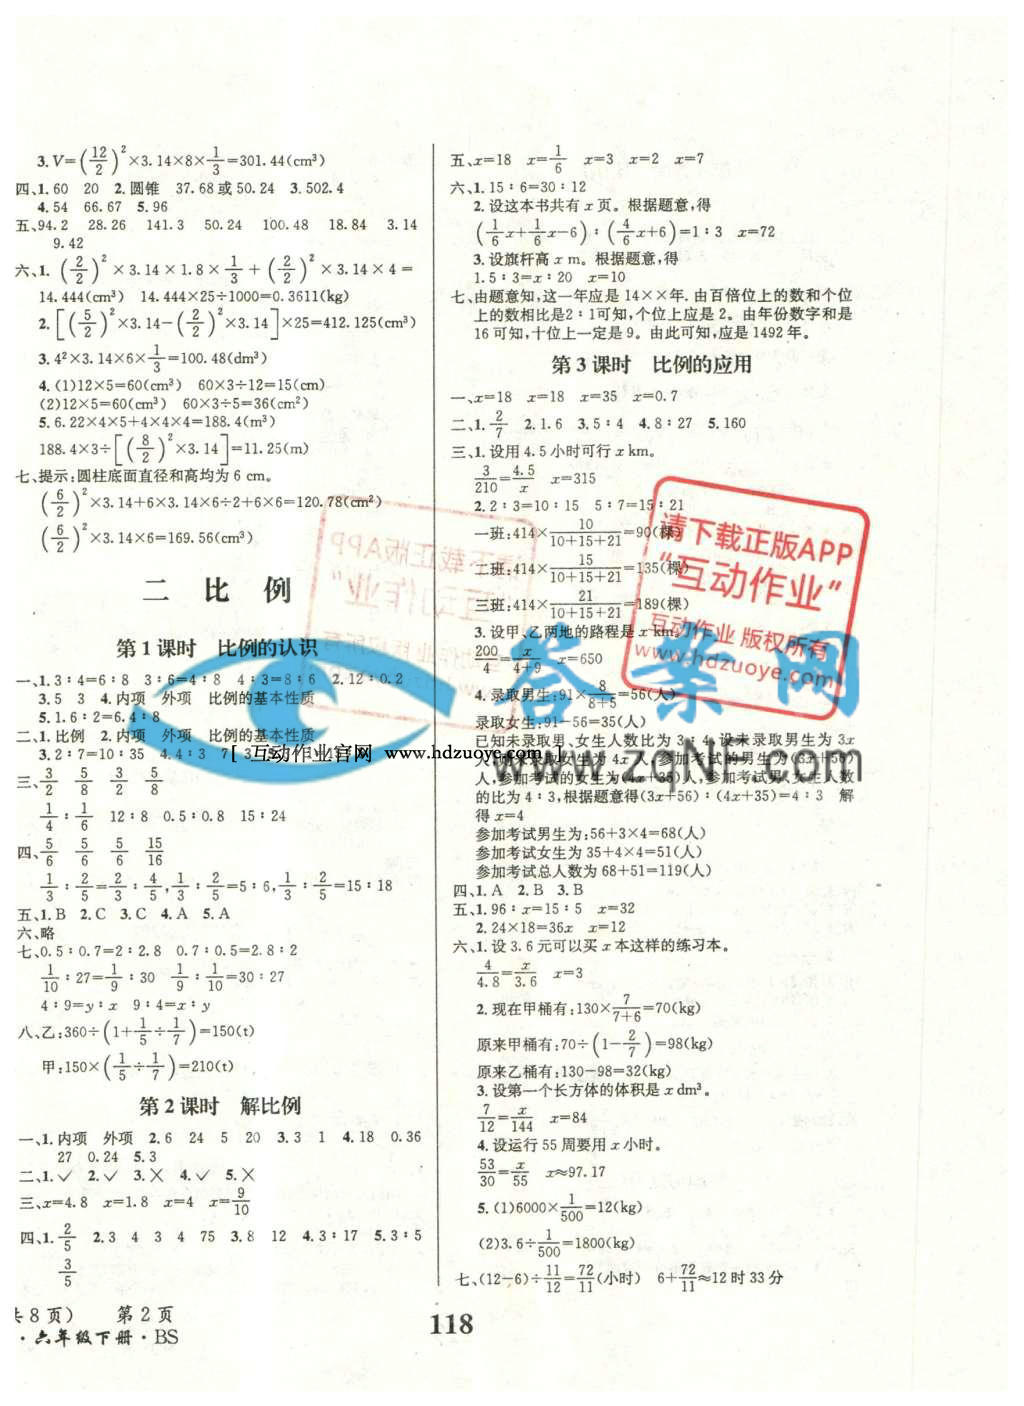 3.V=(12/2)²×3.14×8×1/3=301.44(cm³)
四、1.60 20 2.圆锥 37.68或50.24 3.502.4
4.54 66.67 5.96
五、94.2 28.26 141.3 50.24 100.48 18.84 3.14
9.42
六、1.(2/2)²×3.14×1.8×1/3+(2/2)²×3.14×4=
14.444(cm³) 14.444×25÷1000=0.3611(kg)
2.[(5/2)²×3.14-(2/2)²×3.14]×25=412.125(cm³)
3.4²×3.14×6×1/3=100.48(dm³)
4.(1)12×5=60(cm³) 60×3÷12=15(cm)
(2)12×5=60(cm³) 60×3÷5=36(cm²)
5.6.22×4×5+4×4×4=188.4(m³)
188.4×3÷[(8/2)²×3.14]=11.25(m)
七、提示:圆柱底面直径和高均为6 cm。
(6/2)²×3.14+6×3.14×6÷2+6×6=120.78(cm²)
(6/2)²×3.14×6=169.56(cm³)
二 比 例
第1课时 比例的认识
一、1.3∶4=6∶8 3∶6=4∶8 4∶3=8∶6 2.12∶0.2
3.5 3 4.内项 外项 比例的基本性质
5.1.6∶2=6.4∶8
二、1.比例 2.内项 外项 比例的基本性质
3.2∶7=10∶35 4.4∶3 7
三、3/2 5/8 3/2 5/8
1/4∶1/6 12∶8 0.5∶0.8 15∶24
四、5/6 5/6 5/6 15/16
1/3∶2/5=2/3∶4/5,1/3∶2/5=5∶6,1/3∶2/5=15∶18
五、1.B 2.C 3.C 4.A 5.A
六、略
七、0.5∶0.7=2∶2.8 0.7∶0.5=2.8∶2
1/10∶27=1/9∶30 1/9∶1/10=30∶27
4∶9=y∶x 9∶4=x∶y
八、乙:360÷(1+1/5÷1/7)=150(t)
甲:150×(1/5÷1/7)=210(t)
第2课时 解比例
一、1.内项 外项 2.6 24 5 20 3.3 1 4.18 0.36
27 0.24 5.3
二、1.✓ 2.✓ 3.× 4.✓ 5.×
三、x=4.8 x=1.8 x=4 x=9/10
四、1.2/5 2.3 4 3 4 75 3.8 12 4.3∶17 5.3∶5
3/5
共8页) 第2页
·六年级下册·BS
五、x=18 x=1/6 x=3 x=2 x=7
六、1.15∶6=30∶12
2.设这本书共有x页。根据题意,得
(1/6x+1/6x-6)∶(4/6x+6)=1∶3 x=72
3.设旗杆高x m。根据题意,得
1.5∶3=x∶20 x=10
七、由题意知,这一年应是14××年.由百倍位上的数和个位
上的数相比是2∶1可知,个位上应是2。由年份数字和是
16可知,十位上一定是9。由此可知,应是1492年。
第3课时 比例的应用
一、x=18 x=18 x=35 x=0.7
二、1.2/7 2.1.6 3.5∶4 4.8∶27 5.160
三、1.设用4.5小时可行x km。
3/210=4.5/x x=315
2.2∶3=10∶15 5∶7=15∶21
一班:414×10/(10+15+21)=90(棵)
二班:414×15/(10+15+21)=135(棵)
三班:414×21/(10+15+21)=189(棵)
3.设甲、乙两地的路程是x km。
200/4=x/(4+9) x=650
4.录取男生:91×8/(8+5)=56(人)
录取女生:91-56=35(人)
已知未录取男、女生人数比为3∶4,设未录取男生为3x
人,则未录取女生为4x人,参加考试的男生为(3x+56)
人,参加考试的女生为(4x+35)人,参加考试男、女生人数
的比为4∶3,根据题意得(3x+56)∶(4x+35)=4∶3 解
得x=4
参加考试男生为:56+3×4=68(人)
参加考试女生为35+4×4=51(人)
参加考试总人数为68+51=119(人)
四、1.A 2.B 3.B
五、1.96∶x=15∶5 x=32
2.24×18=36x x=12
六、1.设3.6元可以买x本这样的练习本。
4/4.8=x/3.6 x=3
2.现在甲桶有:130×7/(7+6)=70(kg)
原来甲桶有:70÷(1-2/7)=98(kg)
原来乙桶有:130-98=32(kg)
3.设第一个长方体的体积是x dm³。
7/12=x/144 x=84
4.设运行55周要用x小时。
53/30=x/55 x≈97.17
5.(1)6000×1/500=12(kg)
(2)3.6÷1/500=1800(kg)
七、(12-6)÷11/12=72/11(小时) 6+72/11≈12时33分
118
请下载正版APP
“互动作业”
互动作业 版权所有
www.hdzuoye.com
[ 互动作业官网 www.hdzuoye.com ]
答案网
www.zqNf.com